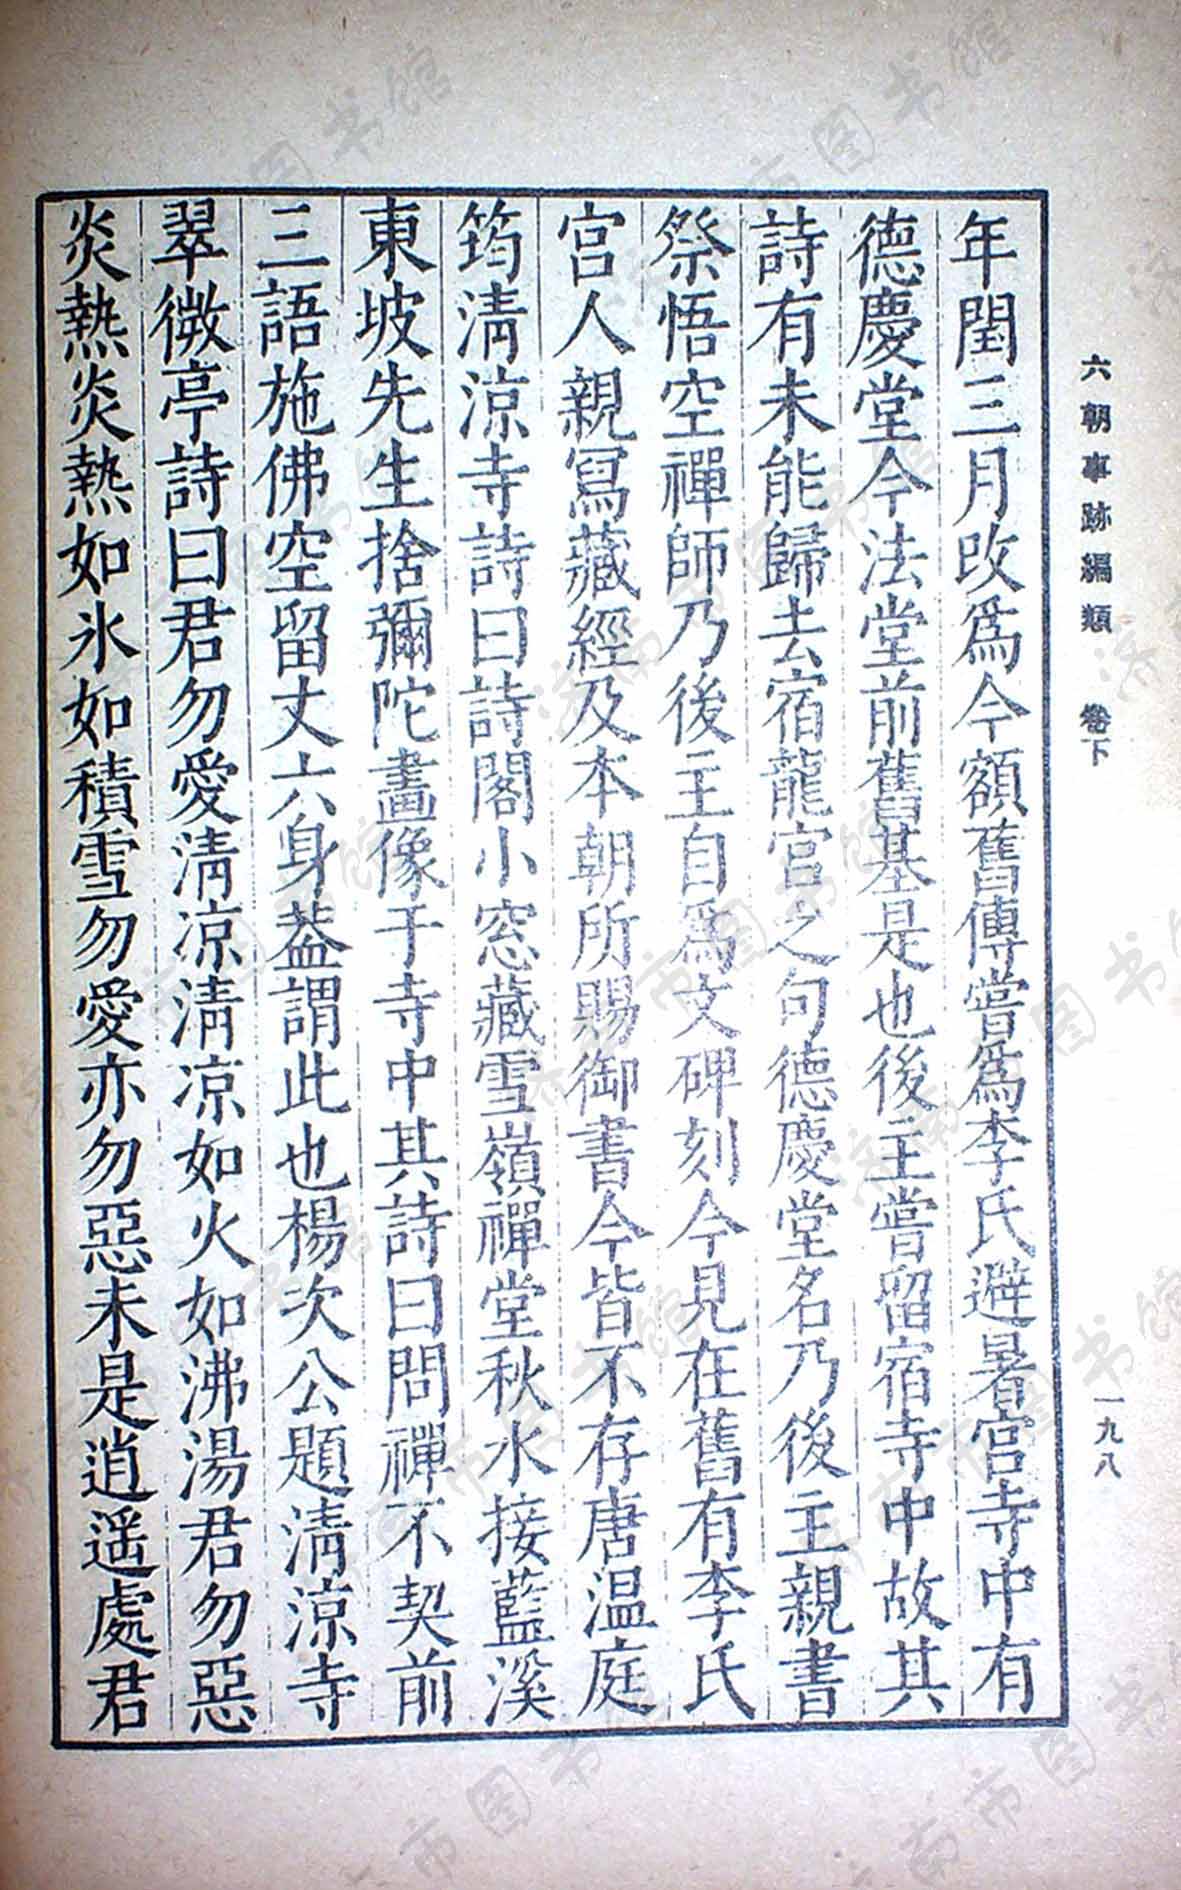 六朝事跡編類　卷下　一九八
年閏三月改爲今額舊傳嘗爲李氏避暑宮寺中有
德慶堂今法堂前舊基是也後主嘗留宿寺中故其
詩有未能歸去宿龍宮之句德慶堂名乃後主親書
祭悟空禪師乃後主自爲文碑刻今見在舊有李氏
宮人親冩藏經及本朝所賜御書今皆不存唐温庭
筠清涼寺詩曰詩閣小窓藏雪嶺禪堂秋水接藍溪
東坡先生捨彌陀畫像于寺中其詩曰問禪不契前
三語施佛空留丈六身葢謂此也楊次公題清涼寺
翠微亭詩曰君勿愛清凉清凉如火如沸湯君勿惡
炎熱炎熱如氷如積雪勿愛亦勿惡未是逍遥處君
济南市图书馆